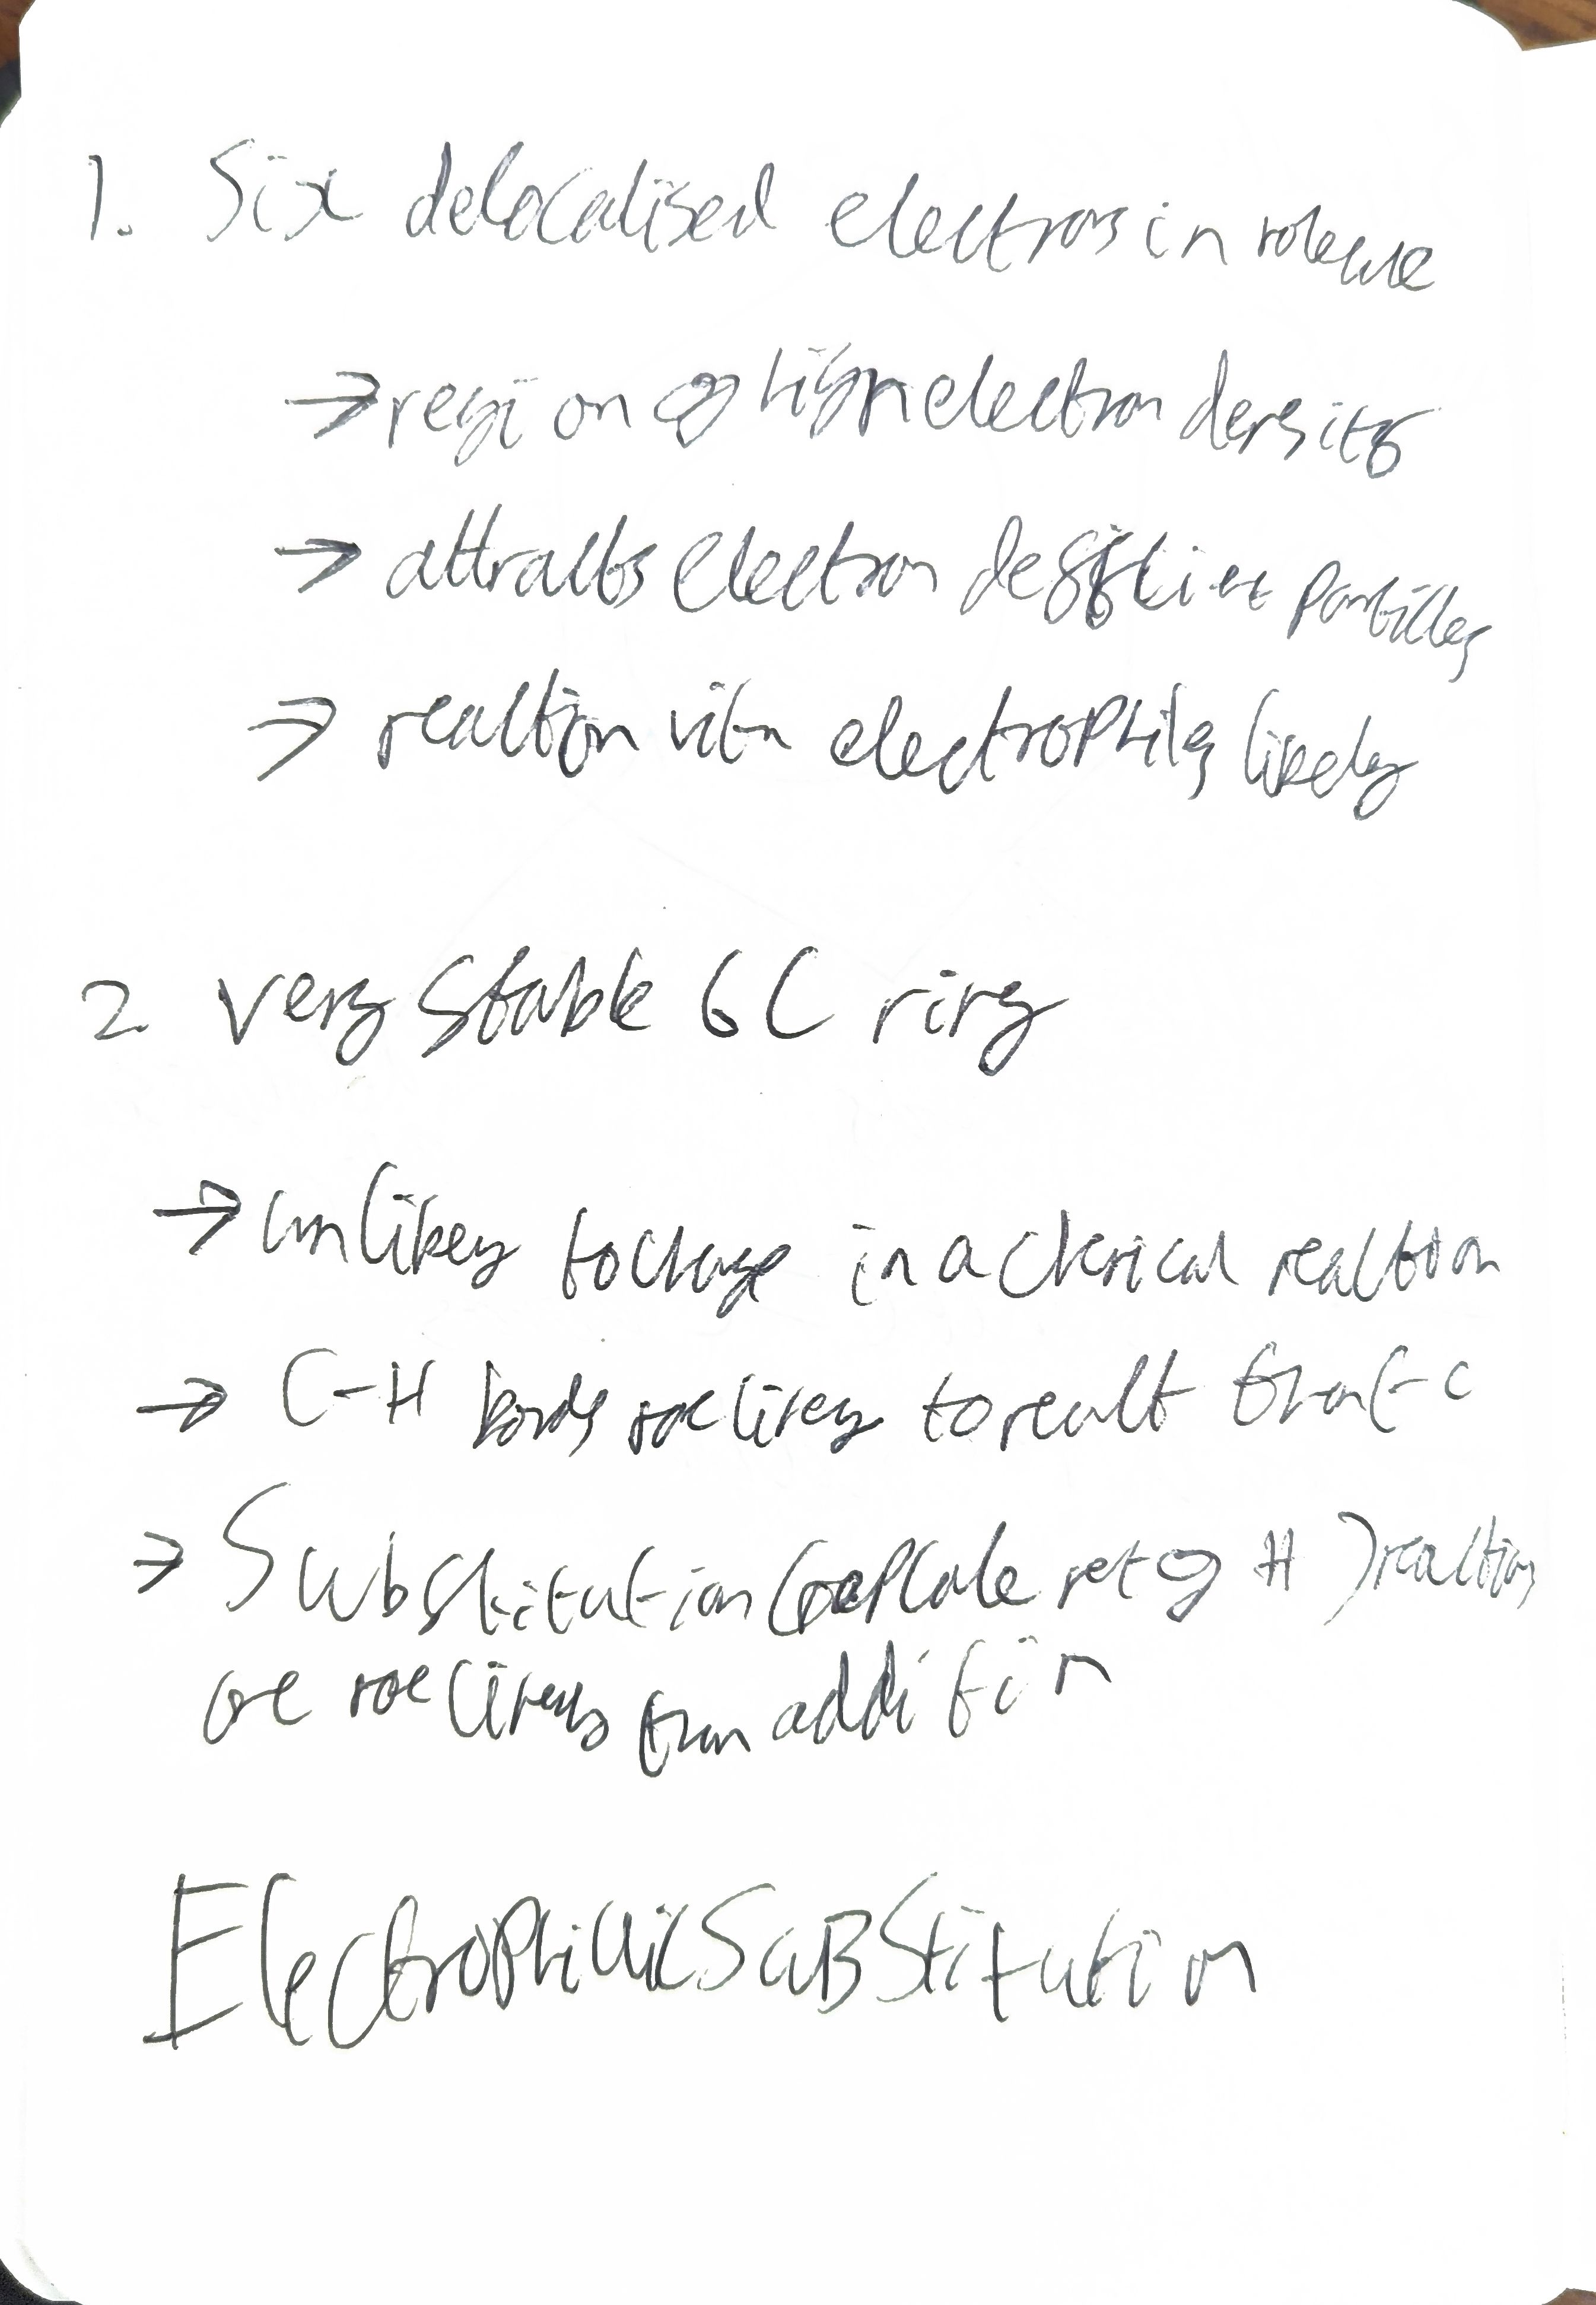 1. Six delocalised electrons in molecule
→ region of high electron density
→ attracts electron defficient particles
→ reaction with electrophiles likely
2 very stable 6C ring
→ unlikely to change in a chemical reaction
→ C-H bonds more likely to react than C-C
→ Substitution (replace of H) reactions
are more likely than addition
Electrophillic Substitution